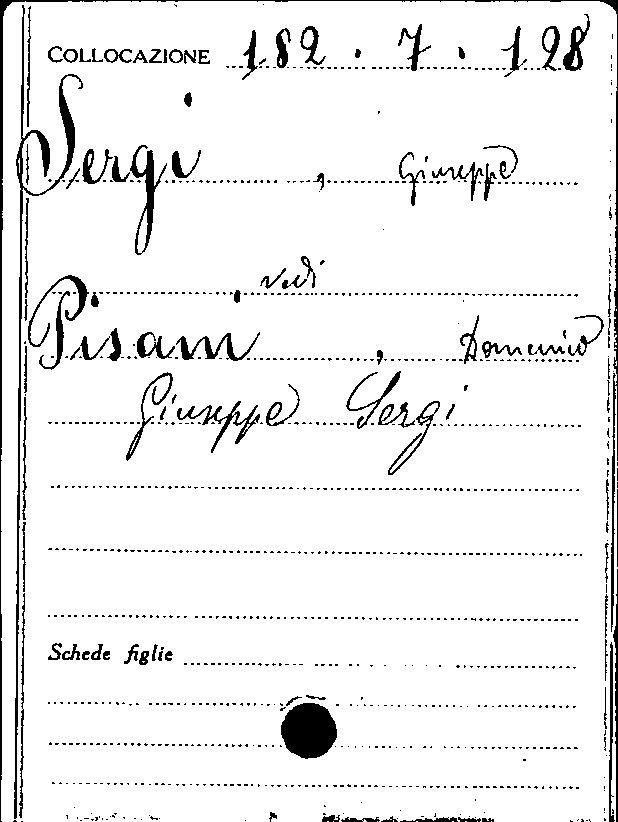 COLLOCAZIONE 182.7.128
Sergi, Giuseppe
vedi
Pisani, Domenico
Giuseppe Sergi
Schede figlie